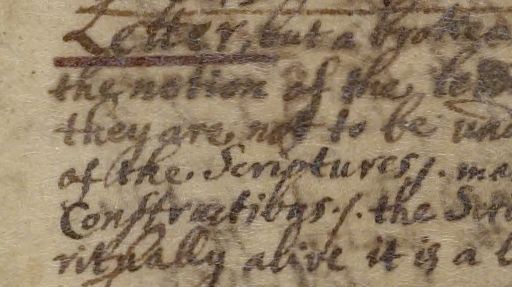 Letter, but a
the notion of the
they are, not to be
of the Scriptures /. ma
Constructibqs /. the Scri
ritually alive it is a l